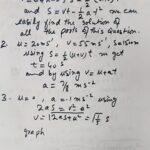 and S = vt - ½at² we can
easily find the solution of
all the parts of this question.
2. u = 20ms⁻¹, v = 55ms⁻¹, S = 1500m
using S = ½(u+v)t we get
t = 40s
and by using v = u+at
a = 7/8 ms⁻²
3. u = 0, a = .1ms⁻² using
2as = v² - u²
graph